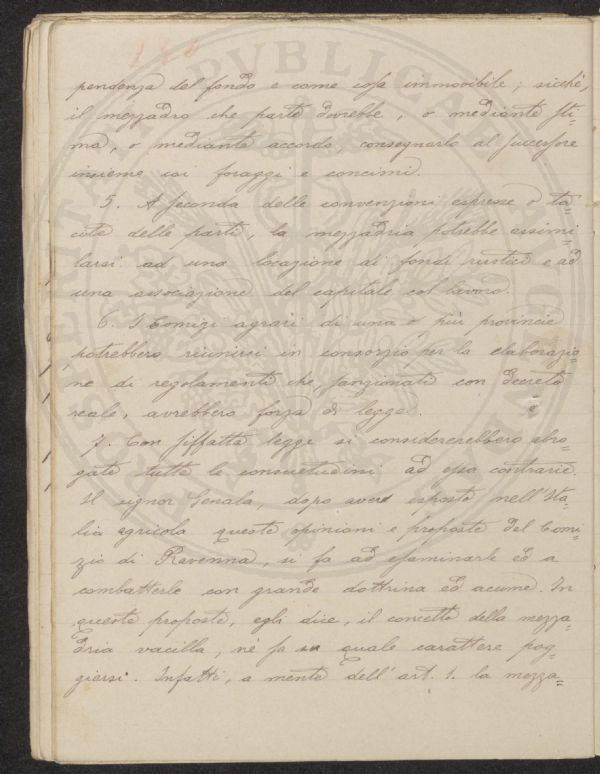 140
pendenza del fondo e come cosa immovibile; sicché,
il mezzadro che parte dovrebbe, o mediante sti=
ma, o mediante accordo, consegnarlo al successore
insieme coi foraggi e concimi.
5. A seconda delle convenzioni espresse o ta=
cite delle parti, la mezzadria potrebbe assimi=
larsi ad una locazione di fondi rustici e ad
una associazione del capitale col lavoro.
6. I Comizi agrari di una o più provincie
potrebbero riunirsi in consorzio per la elaborazio=
ne di regolamenti che sanzionati con decreto
reale, avrebbero forza di legge.
7. Con siffatta legge si considererebbero abro=
gate tutte le consuetudini ad essa contrarie.
Il signor Genala, dopo avere esposte nell'Ita=
lia agricola queste opinioni e proposte del Comi=
zio di Ravenna, si fa ad esaminarle ed a
combatterle con grande dottrina ed acume. In
queste proposte, egli dice, il concetto della mezza=
dria vacilla, né sa su quale carattere pog=
giarsi. Infatti, a mente dell'art. 1. la mezza=